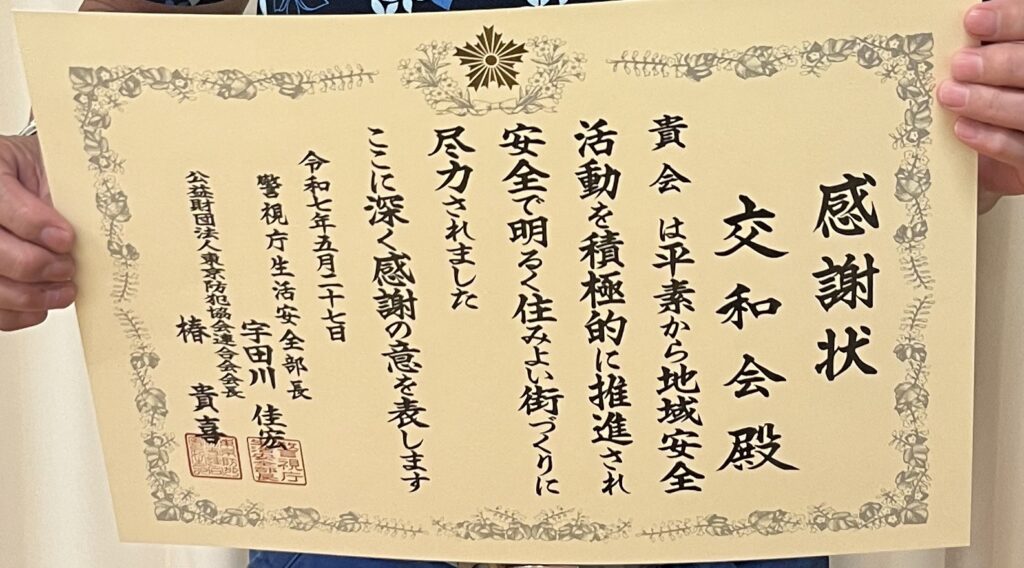 感謝状
交和会殿
貴会は平素から地域安全
活動を積極的に推進され
安全で明るく住みよい街づくりに
尽力されました
ここに深く感謝の意を表します
令和七年五月二十七日
警視庁生活安全部長
宇田川佳宏
公益財団法人東京防犯協会連合会会長
椿貴喜